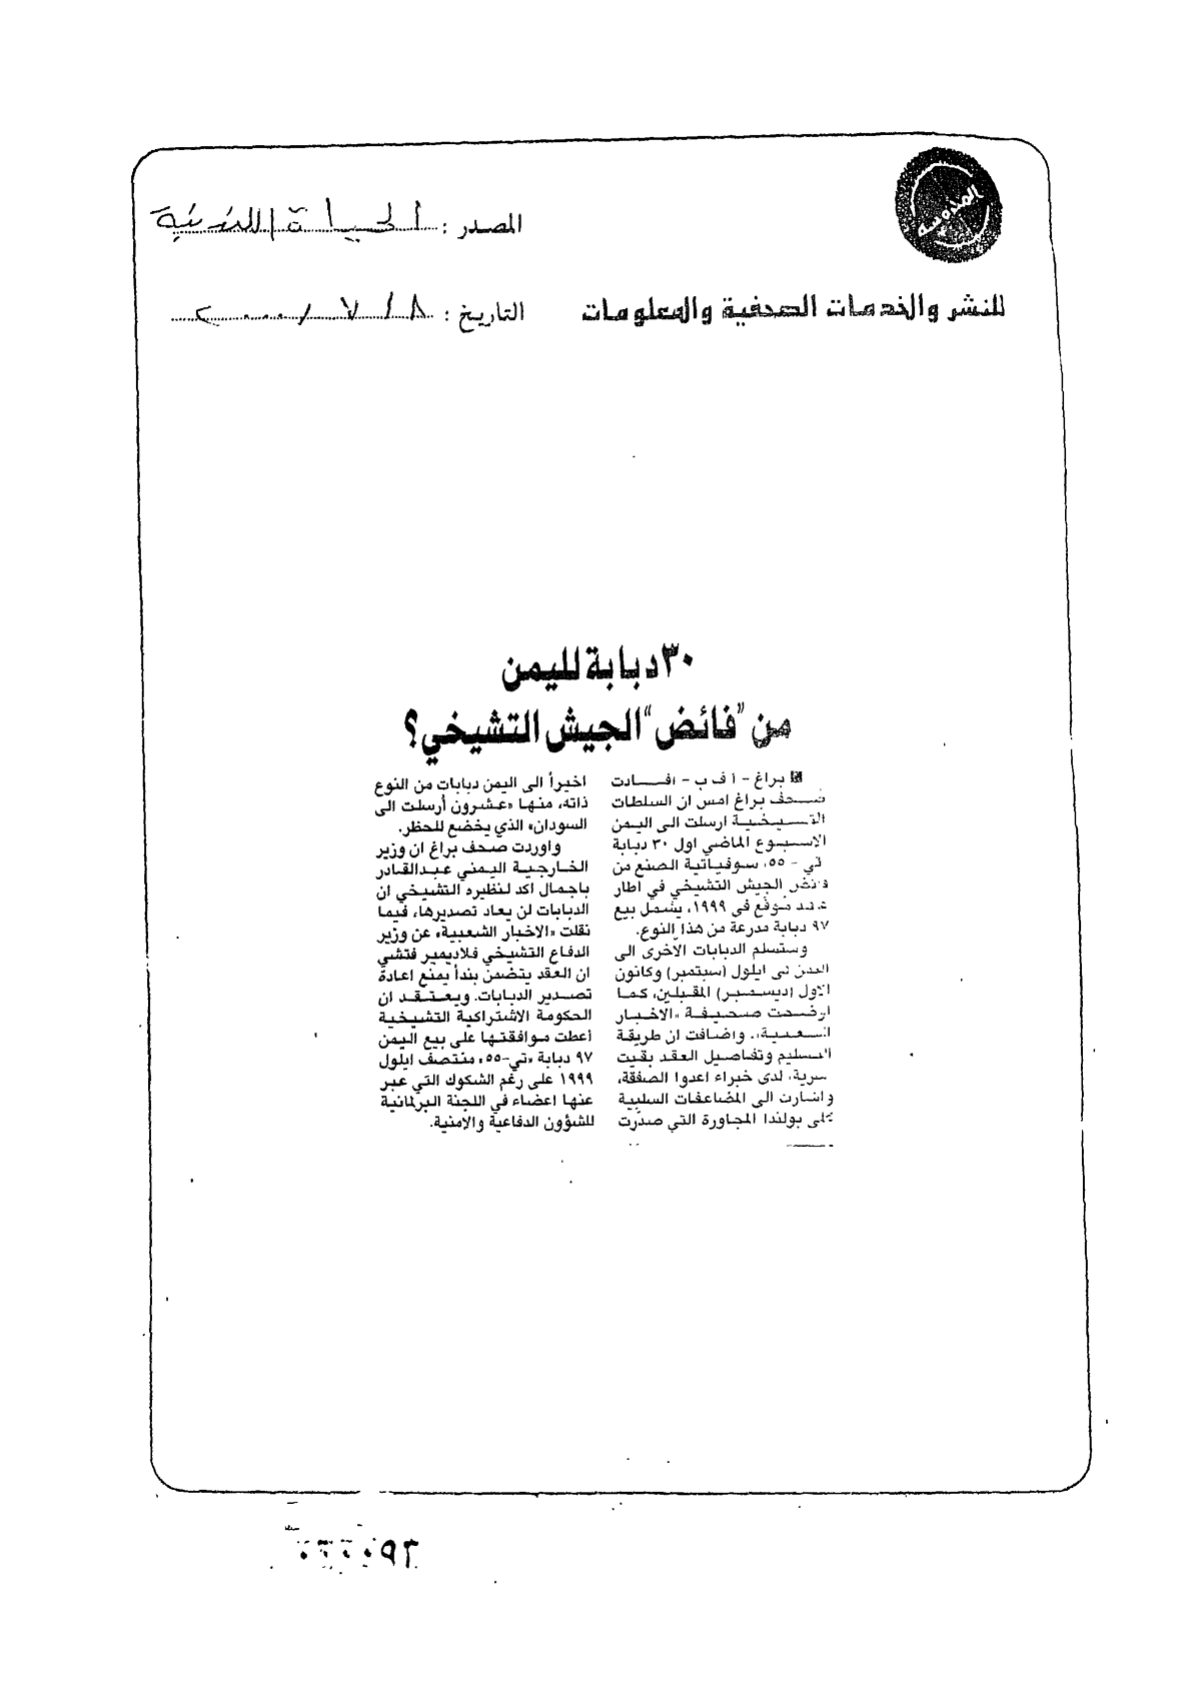 المصدر : الحياة اللندنية
للنشر والخدمات الصحفية والمعلومات
التاريخ : ٨ / ٧ / ٢٠٠٠
٣٠ دبابة لليمن
من "فائض" الجيش التشيخي؟
براغ - ا ف ب - افادت
صحف براغ امس ان السلطات
التشيخية ارسلت الى اليمن
الاسبوع الماضي اول ٣٠ دبابة
تي - ٥٥، سوفياتية الصنع من
فائض الجيش التشيخي في اطار
عقد موقّع في ١٩٩٩، يشمل بيع
٩٧ دبابة مدرعة من هذا النوع.
وستسلم الدبابات الأخرى الى
اليمن في ايلول (سبتمبر) وكانون
الاول (ديسمبر) المقبلين، كما
اوضحت صحيفة «الاخبار
الشعبية». واضافت ان طريقة
التسليم وتفاصيل العقد بقيت
سرية، لدى خبراء اعدوا الصفقة،
واشارت الى المضاعفات السلبية
على بولندا المجاورة التي صدّرت
اخيراً الى اليمن دبابات من النوع
ذاته، منها «عشرون أرسلت الى
السودان» الذي يخضع للحظر.
واوردت صحف براغ ان وزير
الخارجية اليمني عبدالقادر
باجمال اكد لنظيره التشيخي ان
الدبابات لن يعاد تصديرها، فيما
نقلت «الاخبار الشعبية» عن وزير
الدفاع التشيخي فلاديمير فتشي
ان العقد يتضمن بنداً يمنع اعادة
تصدير الدبابات. ويعتقد ان
الحكومة الاشتراكية التشيخية
أعطت موافقتها على بيع اليمن
٩٧ دبابة «تي-٥٥» منتصف ايلول
١٩٩٩ على رغم الشكوك التي عبر
عنها اعضاء في اللجنة البرلمانية
للشؤون الدفاعية والامنية.